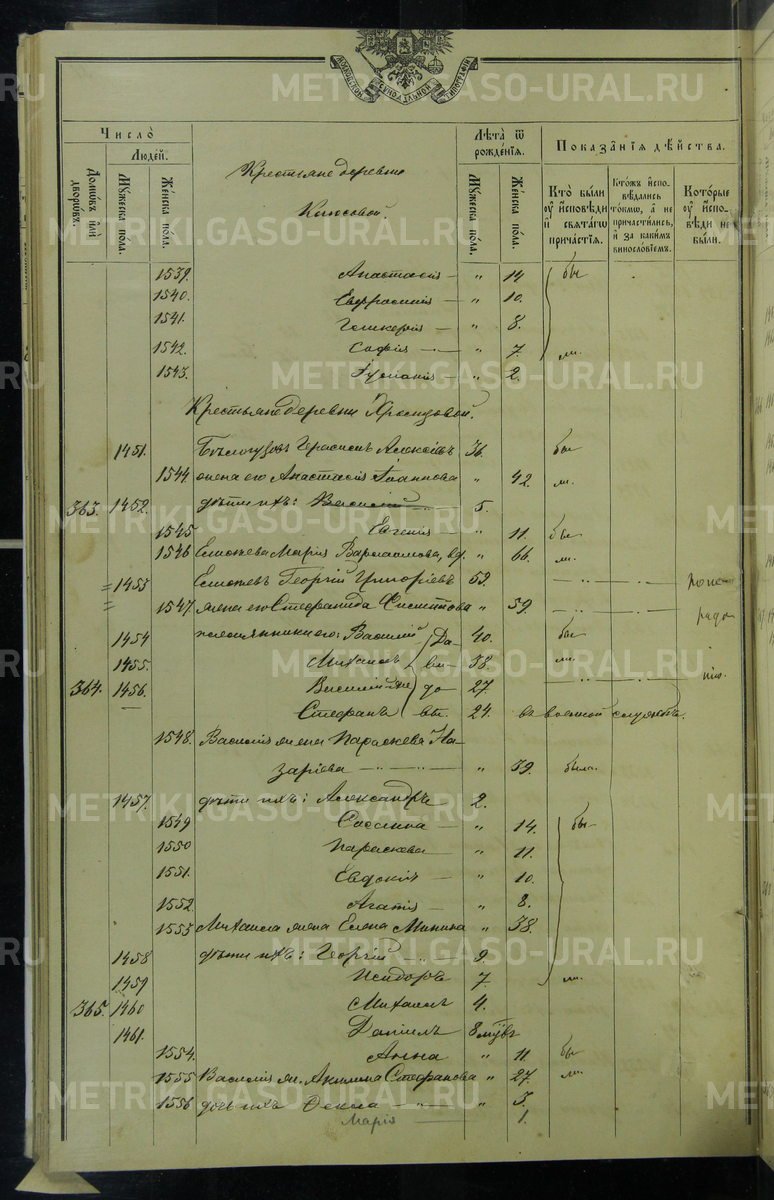 МОСКОВСКОЙ СѴНОДАЛЬНОЙ ТИПОГРАФІИ
Число̀
Домѡвъ или дворѡвъ.
Людей.
Мꙋжеска пола.
Женска пола.
Крестьяне деревни
Лѣта ѿ рожденїѧ.
Мꙋжеска пола.
Женска пола.
Показанїѧ дѣйства.
Кто были ᲂу исповѣди и свѧтагѡ причастїѧ.
Ктожъ исповѣдались токмѡ, а не причастились, и за какимъ винословїемъ.
Которые ᲂу исповѣди не были.
1539. Анастасія — „ 14 бы
1540. Евфросинія — „ 10.
1541. Гликерія — „ 8.
1542. Софія — „ 7. ли.
1543. — „ 2.
Крестьяне деревни
1451. Бѣлогузовъ Герасимъ Алексѣевъ 36. бы
1544 жена его Анастасія Іоаннова „ 42. ли.
363. 1452. дѣти ихъ: Василій — 5.
1545 Евгенія — „ 11. бы
1546 Мария Варлаамова, вд. „ 66. ли.
1453 Георгій Григорьевъ 59. — „ —
1547. жена его Стефанида „ 59. — „ —
1454 племянники его: Василій 40. бы
1455. Михаилъ 38. ли.
364. 1456. Василій 27. — „ —
Стефанъ 24. въ военной службѣ.
1548. Василія жена Параскева На-
заріева — „ — „ 39. была.
1457. дѣти ихъ: Александръ 2.
1549 — „ 14. бы
1550 Параскева — „ 11.
1551. Евдокія — „ 10.
1552. Агатія — „ 8.
1553 Михаила жена Елена Минина „ 38.
1458 дѣти ихъ: Георгій — 9.
1459 Исидоръ 7. ли.
365. 1460 Михаилъ 4.
1461. Даніилъ 8 мѣ
1554. Анна „ 11. бы
1555 Василія ж. Акилина Стефанова „ 27. ли.
1556 дочь ихъ Фекла — „ 3.
Марія — 1.
METRIKI.GASO-URAL.RU